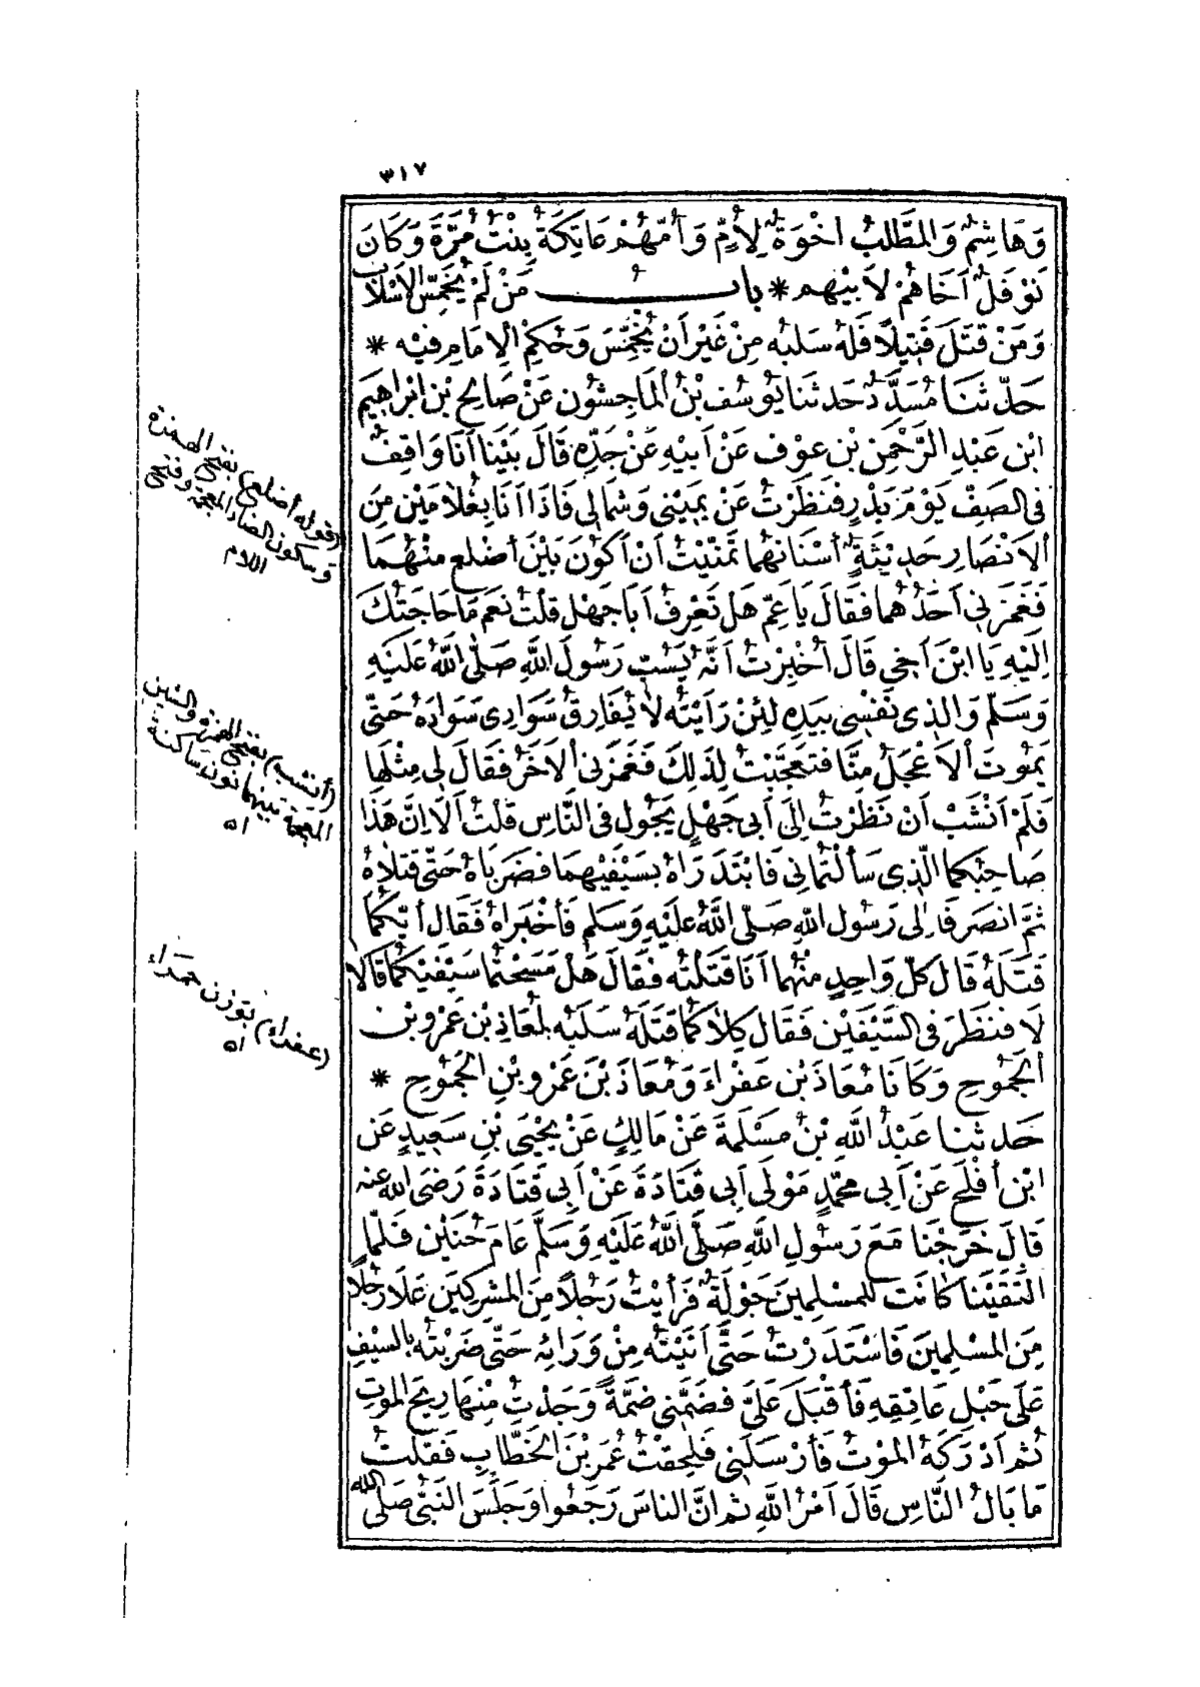 ٣١٧
وَهَاشِمٌ وَالمطَّلِبُ اخْوَةٌ لِأُمٍّ وَأُمّهُمْ عَاتِكَةُ بِنْتُ مُرَّةَ وَكَانَ
نَوْفَلُ أَخَاهُمْ لأَبِيْهِم * باب مَنْ لَمْ يُخَمِّسِ الأَسْلَابَ
وَمَنْ قَتَلَ قَتِيْلًا فَلَهُ سَلبُه مِنْ غَيْرِ أَنْ يُخَمِّسَ وَحُكْمِ الإِمَامِ فِيْهِ *
حَدّثنَا مُسَدَّدٌ حَدثنَا يُوسُف بْنُ المَاجِشُون عَنْ صَالِح بْن ابْراهِيم
ابْن عَبْدِ الرَّحْمٰنِ بْن عوْف عَنْ أَبيْهِ عَنْ جَدِّه قَالَ بَيْنَا أنَا وَاقِفٌ
فى الصَفِّ يَوْمَ بَدْرٍ فنَظَرْتُ عَنْ يمَيْنِى وَشمَالِى فَاذَا أنَا بِغُلَامَيْن مِنَ
الأَنْصَارِ حَدِيْثَةٍ أَسْنَانُهُما تَمنَّيْتُ أَنْ أَكُوْنَ بَيْنَ أضْلَع مِنْهُمَا
فَغَمزَنِى أَحَدُهُما فَقَالَ يَا عَمِّ هَلْ تَعْرِفُ أَبَا جَهْل قلْتُ نعَم مَا حَاجَتُكَ
إِلَيْهِ يَا ابْنَ أَخِى قَالَ أُخْبِرْتُ أَنَّهُ يَسُبّ رَسُولَ اللهِ صَلَّى اللهُ عَلَيْهِ
وَسَلّم وَالذِى نَفْسِى بيَدِهِ لَئِنْ رَأَيْتُه لَا يُفَارِقُ سَوَادِى سَوَادَهُ حَتّى
يَمُوْتَ الأَعْجَلُ مِنَّا فتَعَجَّبْتُ لِذَلِكَ فَغَمزَنِى الآخَرُ فقَالَ لِى مِثْلَهَا
فَلَمْ أَنْشَبْ أَنْ نَظَرْتُ إِلَى أبى جَهْلٍ يَجُول فى النَّاسِ قلْتُ ألَا إِنَّ هَذَا
صَاحِبُكما الّذِى سَألْتُمانِى فَابْتَدَرَاهُ بسَيْفَيْهِمَا فضَرَبَاهُ حَتّى قتَلَاهُ
ثمَّ انصَرَفَا إلٰى رَسُول اللهِ صَلّى اللهُ عَليْهِ وَسَلم فَأخْبَرَاهُ فَقَال أيّكُمَا
قَتَلَهُ قَال كلّ وَاحِدٍ مِنْهُما أنَا قَتَلْتُه فقَالَ هَلْ مَسَحْتُما سَيْفَيْكُمَا قَالا
لَا فنَظَرَ فى السَّيْفَيْن فَقَال كِلَاكُمَا قتَلَهُ سَلَبُه لمُعَاذِ بْن عَمْرو بْن
الجَمُوحِ وَكَانَا مُعَاذَ بْن عَفْرَاءَ وَمُعَاذَ بْنَ عَمْرو بْنِ الجَمُوحِ *
حَدثنا عَبْدُ اللهِ بْنُ مَسْلَمَةَ عَنْ مَالِكٍ عَنْ يحْيَى بْنِ سَعِيْدٍ عَن
ابْن أفْلَحَ عَنْ أَبِى محمّدٍ مَوْلَى أبِى قتَادَةَ عَنْ أَبِى قَتَادَةَ رَضىَ الله عنه
قَالَ خَرَجْنَا مَعَ رَسُولِ اللهِ صَلَّى اللهُ عَلَيْهِ وَسَلَّمَ عَامَ حُنَيْن فَلمّا
التَقَيْنَا كَانَتْ للمُسْلِمِينَ جَوْلَةٌ فَرَأيْتُ رَجُلًا مِنَ المُشْرِكِيَن عَلَا رَجُلًا
مِنَ المسْلِمِينَ فَاسْتَدَرْتُ حَتَّى أَتَيْتُه مِنْ وَرَائِه حَتّى ضَرَبْتُه بالسَّيْفِ
عَلَى حَبْلِ عَاتِقِهِ فَأَقْبَلَ عَلَيَّ فضَمَّنِى ضَمَّةً وَجَدْتُ مِنْهَا رِيْحَ المَوْتِ
ثُم أدْرَكَهُ المَوْتُ فَأَرْسَلَنِى فَلَحِقْتُ عُمَرَ بْنَ الخَطَّابِ فَقُلْتُ
مَا بَالُ النَّاسِ قَالَ أَمْرُ اللهِ ثم انَّ الناسَ رَجَعُوا وَجَلَسَ النَبيُّ صَلى الله
(قوله أضلع) بفتح الهمزة
وسكون الضاد المعجمة وفتح
اللام
(أنشب) بفتح الهمزة والشين
المعجمة بينهما نون ساكنة
اه
(عفراء) بوزن حمراء
اه